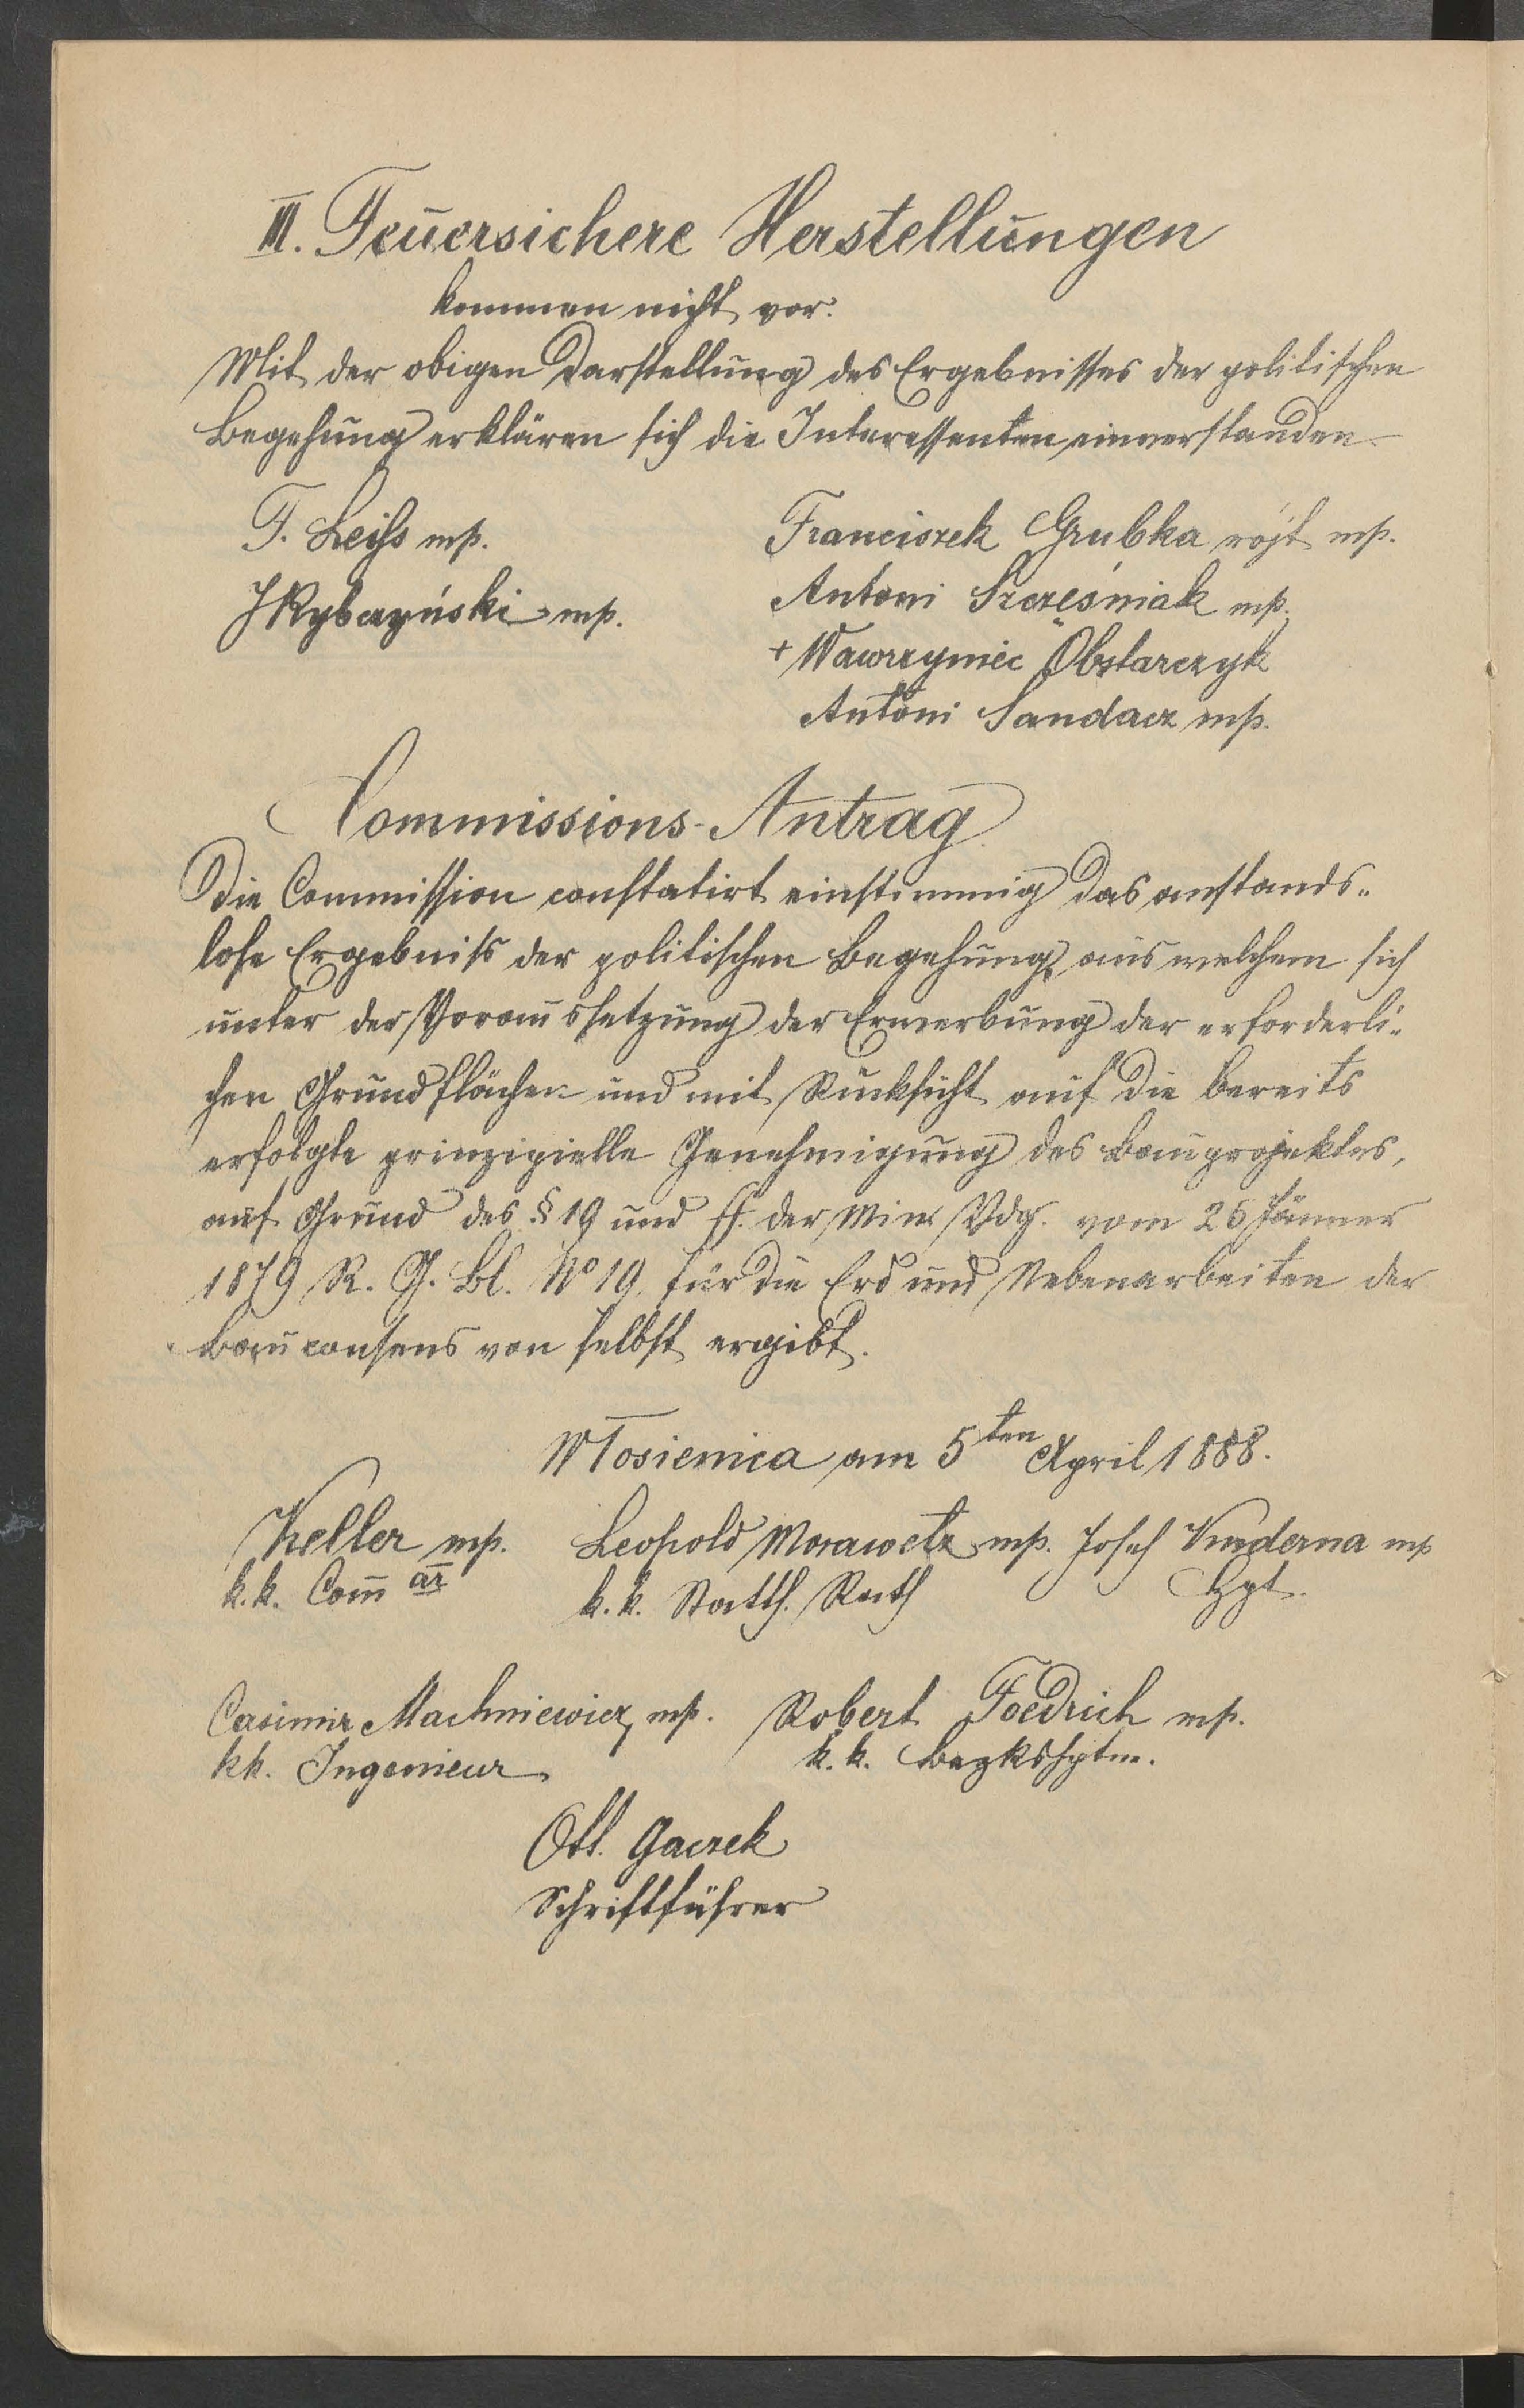 III. Feuersichere Herstellungen
kommen nicht vor.
Mit der obigen Darstellung des Ergebnisses der politischen
Begehung erklären sich die Interessenten einverstanden
F. Leiss mp.
JRybczyński mp.
Franciszek Grubka wójt mp.
Antoni Szcześniak mp.
+ Wawrzyniec Obstarczyk
Antoni Sandacz mp.
Commissions-Antrag.
Die Commission constatirt einstimmig das anstands„
lose Ergebniss der politischen Begehung, aus welchem sich
unter der Voraussetzung der Erwerbung der erforderli„
chen Grundflächen und mit Rücksicht auf die bereits
erfolgte prinzipielle Genehmigung des Bauprojektes,
auf Grund des § 19 und ff. der Min. Vdg. vom 25 Jänner
1879 R. G. Bl. No 19. für die Erd und Nebenarbeiten der
Bauconsens von selbst ergibt.
Włosienica am 5ten April 1888.
Keller mp. Leopold Morawetz mp. Josef Kuderna mp
k.k. Com̄ är k.k. Statth. Rath Hpt.
Casimir Machniewicz mp. Robert Foedrich mp.
kk. Ingenieur k.k. Bezkshptm.
Ott. Gaczek
Schriftführer